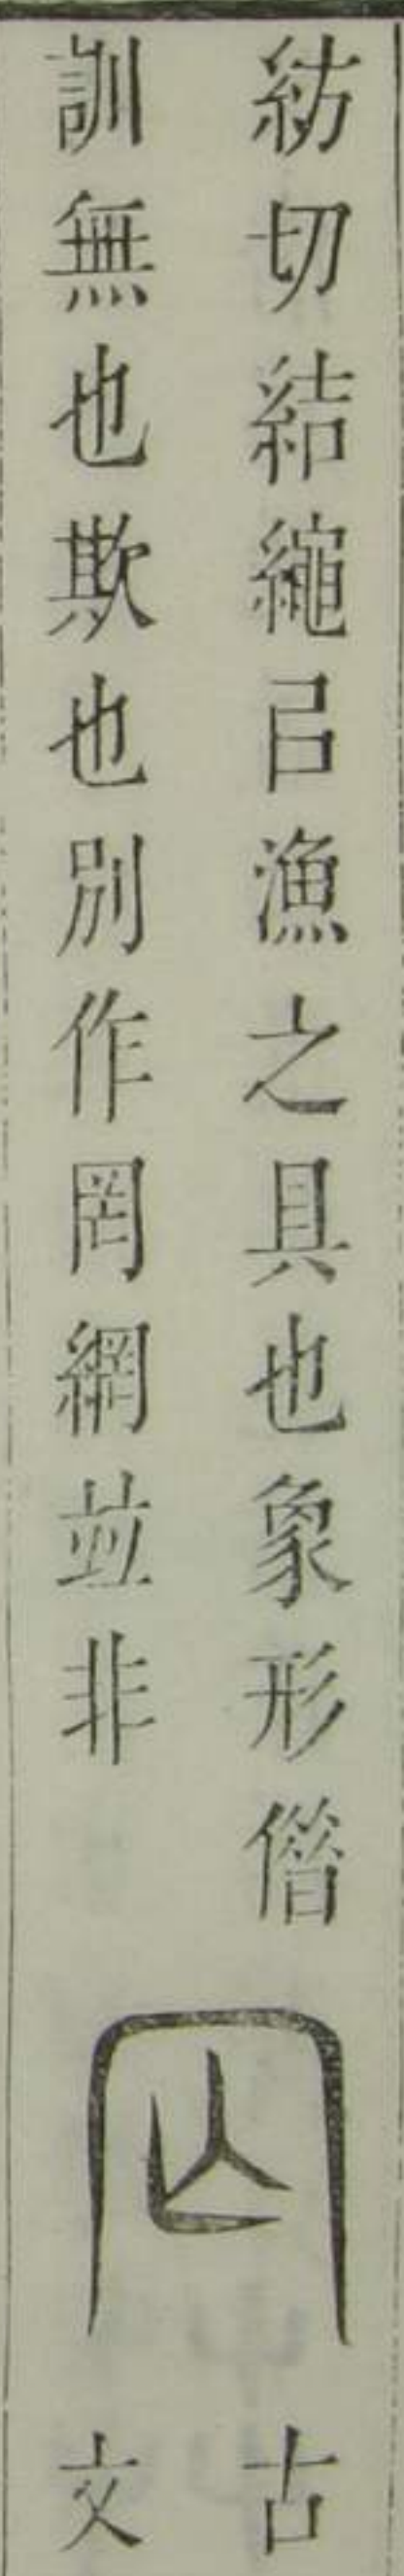 紡切結繩㠯漁之具也象形僭
訓無也欺也別作罔網並非
古
文